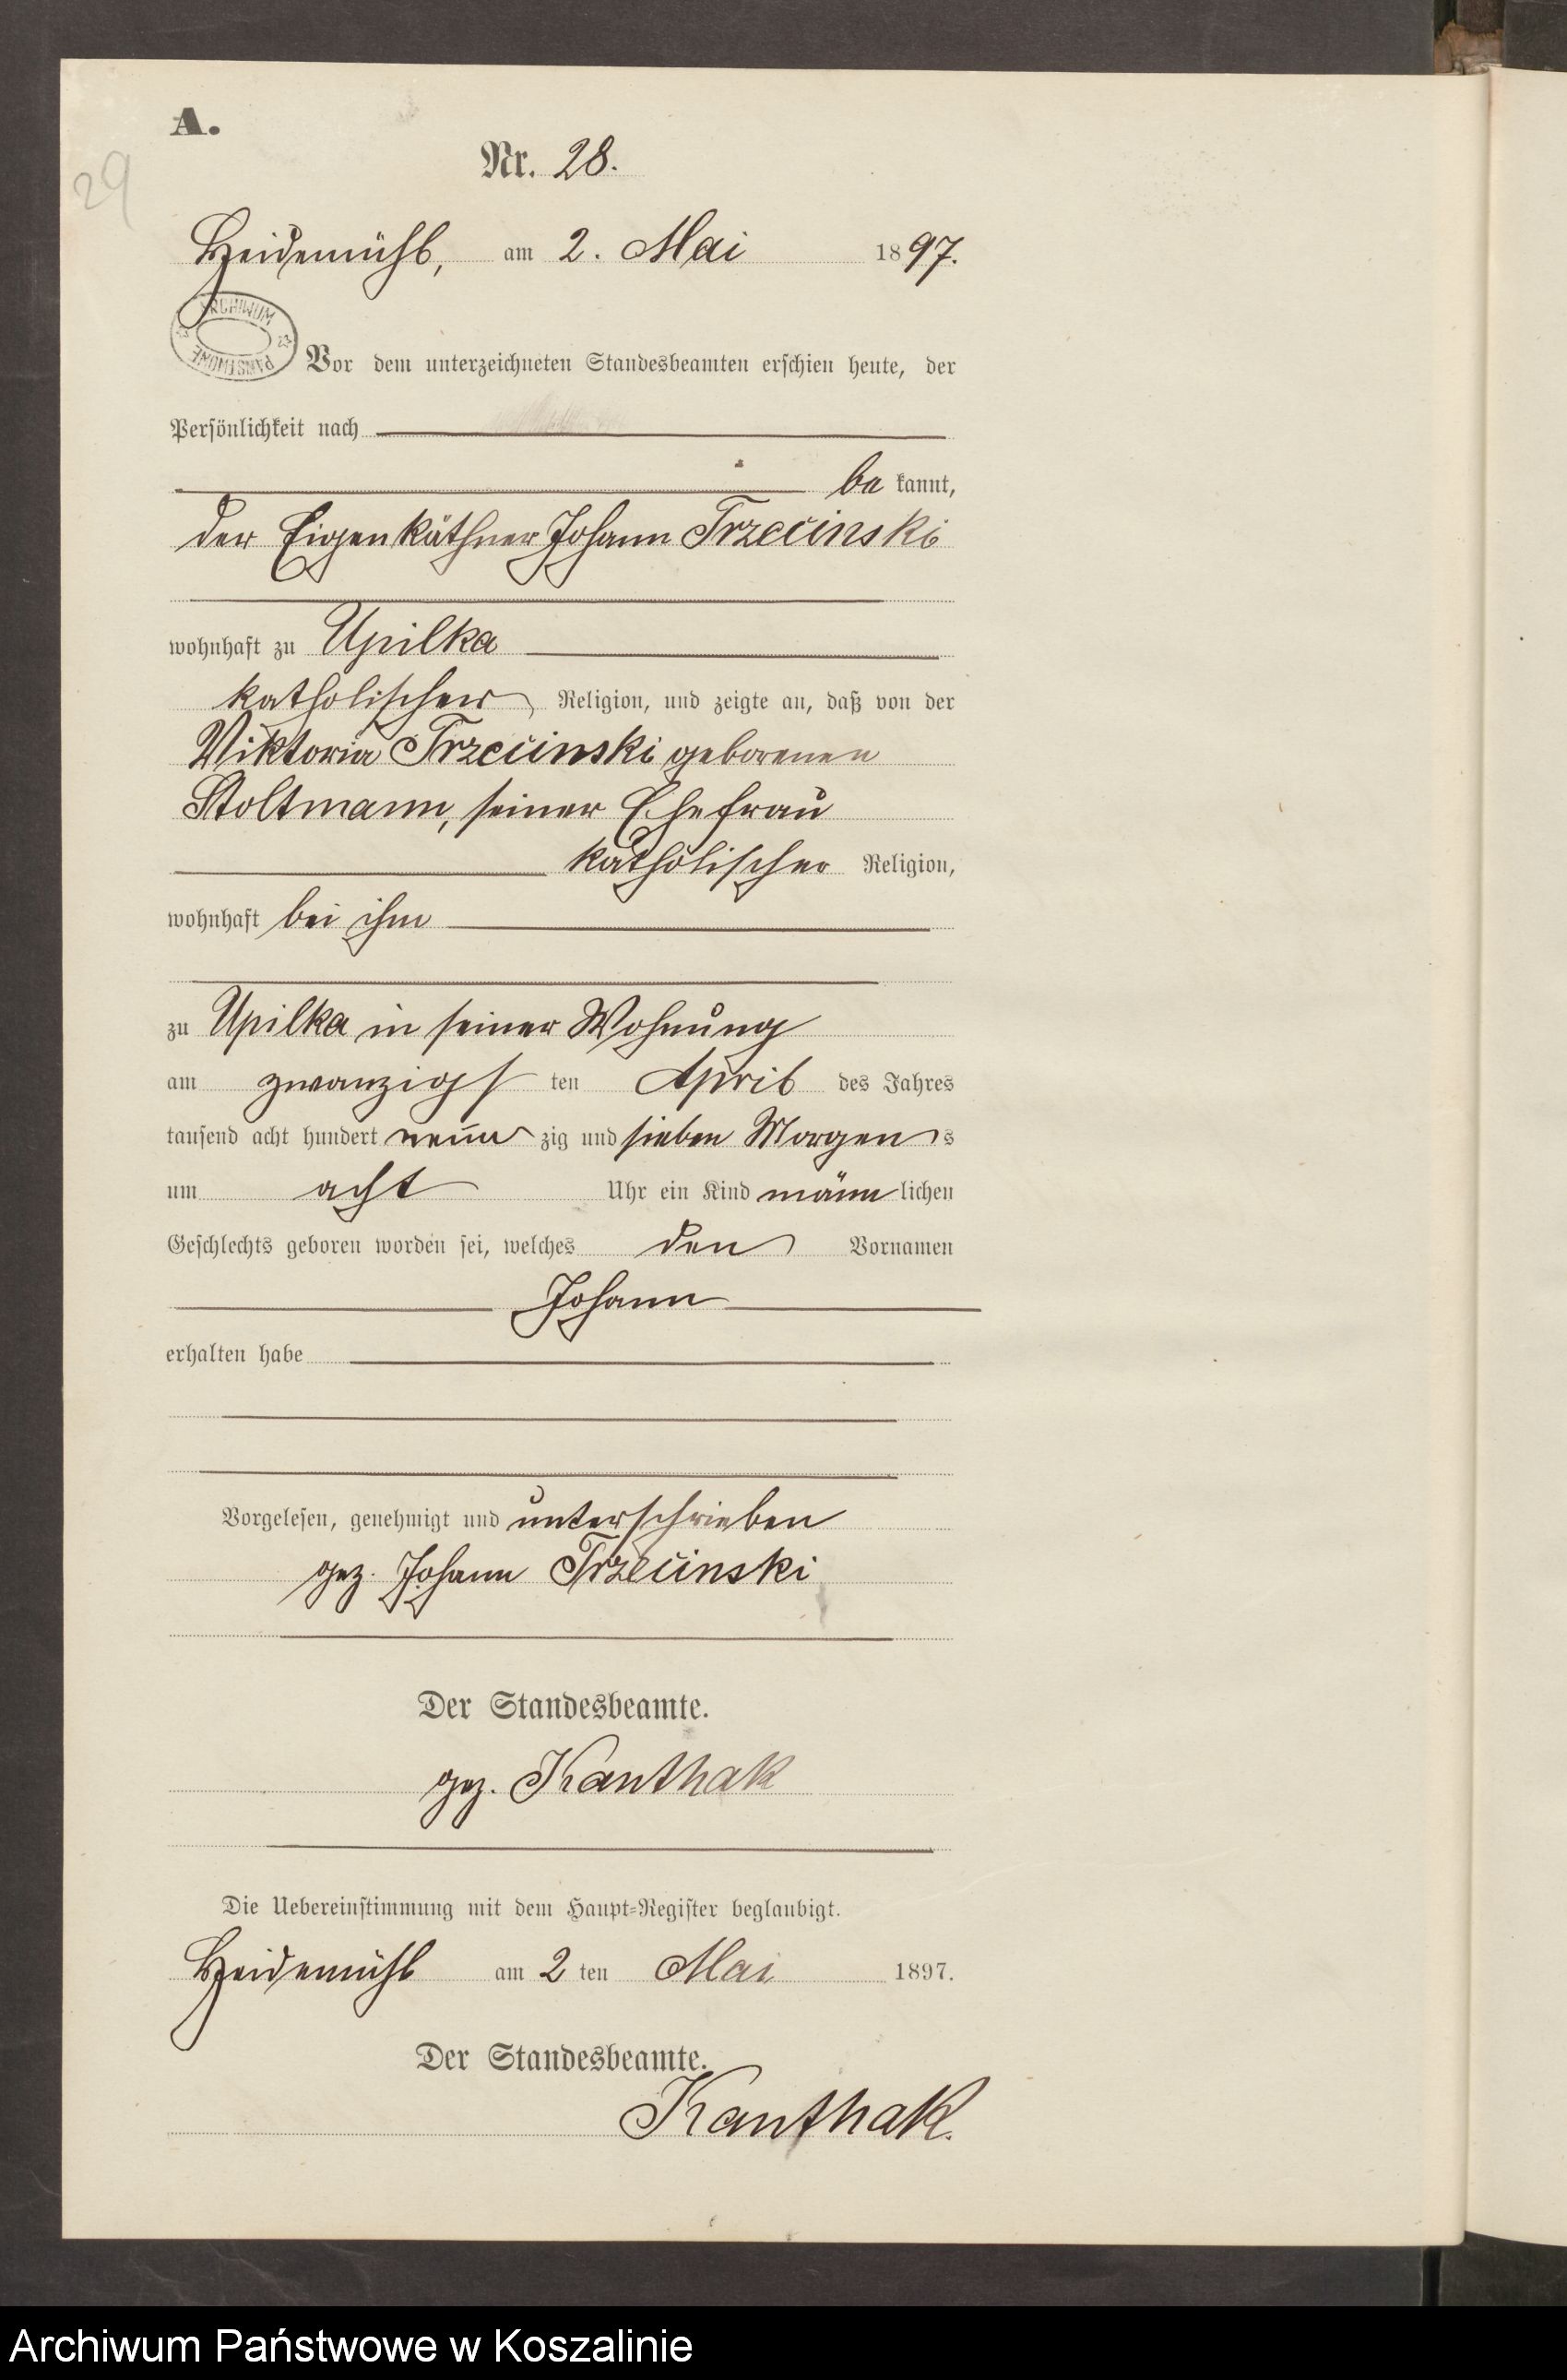 A.
29
Nr. 28.
Heidemühl, am 2. Mai 1897.
ARCHIWUM PAŃSTWOWE
Vor dem unterzeichneten Standesbeamten erschien heute, der
Persönlichkeit nach
be kannt,
der Eigenkäthner Johann Trzecinski
wohnhaft zu Upilka
katholischer Religion, und zeigte an, daß von der
Viktoria Trzecinski geborenen
Stoltmann, seiner Ehefrau
katholischer Religion,
wohnhaft bei ihm
zu Upilka in seiner Wohnung
am zwanzigsten April des Jahres
tausend acht hundert neunzig und sieben Morgens
um acht Uhr ein Kind männlichen
Geschlechts geboren worden sei, welches den Vornamen
Johann
erhalten habe
Vorgelesen, genehmigt und unterschrieben
gez. Johann Trzecinski
Der Standesbeamte.
gez. Kanthak
Die Uebereinstimmung mit dem Haupt-Register beglaubigt.
Heidemühl am 2 ten Mai 1897.
Der Standesbeamte.
Kanthak.
Archiwum Państwowe w Koszalinie